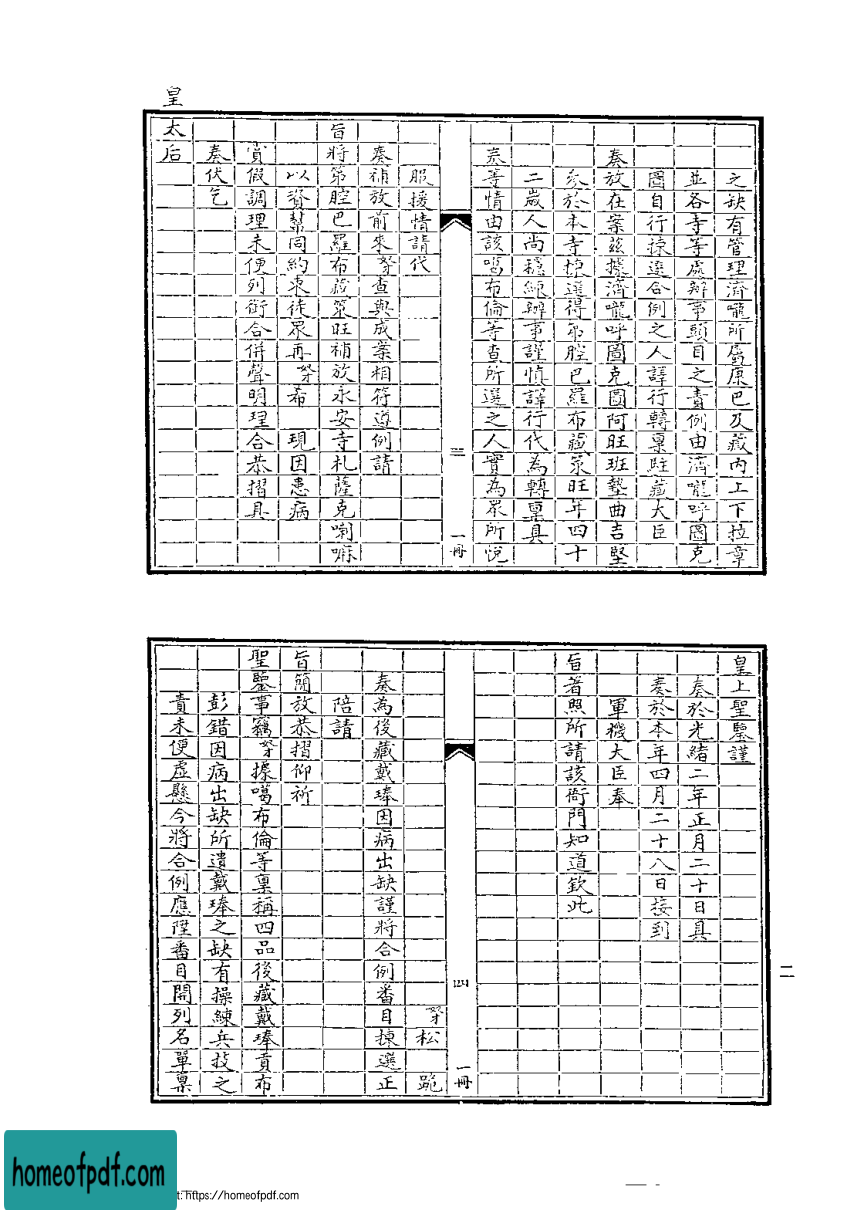 之缺有管理濟嚨所屬康巴及藏內上下拉章
並各寺等處辦事頭目之責例由濟嚨呼圖克
圖自行揀選合例之人譯行轉稟駐藏大臣
奏放在案茲據濟嚨呼圖克圖阿旺班墊曲吉堅
參於本寺揀選得第腔巴羅布藏策旺年四十
二歲人尚穩練辦事謹慎譯行代為轉稟具
奏等情由該噶布倫等查所選之人實為眾所悅
三
一冊
服援情請代
奏補放前來奴查與成案相符遵例請
旨將第腔巴羅布藏策旺補放永安寺札薩克喇嘛
以資幫同約束徒眾再奴希 現因患病
賞假調理未便列銜合併聲明理合恭摺具
奏伏乞
皇太后
皇上聖鑒謹
奏於光緒二年正月二十日具
奏於本年四月二十八日接到
軍機大臣奉
旨著照所請該衙門知道欽此
四
一冊
奴松 跪
奏為後藏戴琫因病出缺謹將合例番目揀選正
陪請
旨簡放恭摺仰祈
聖鑒事竊奴據噶布倫等稟稱四品後藏戴琫貢布
彭錯因病出缺所遺戴琫之缺有操練兵技之
責未便虛懸今將合例應陞番目開列名單稟
二
homeofpdf.com
t: https://homeofpdf.com